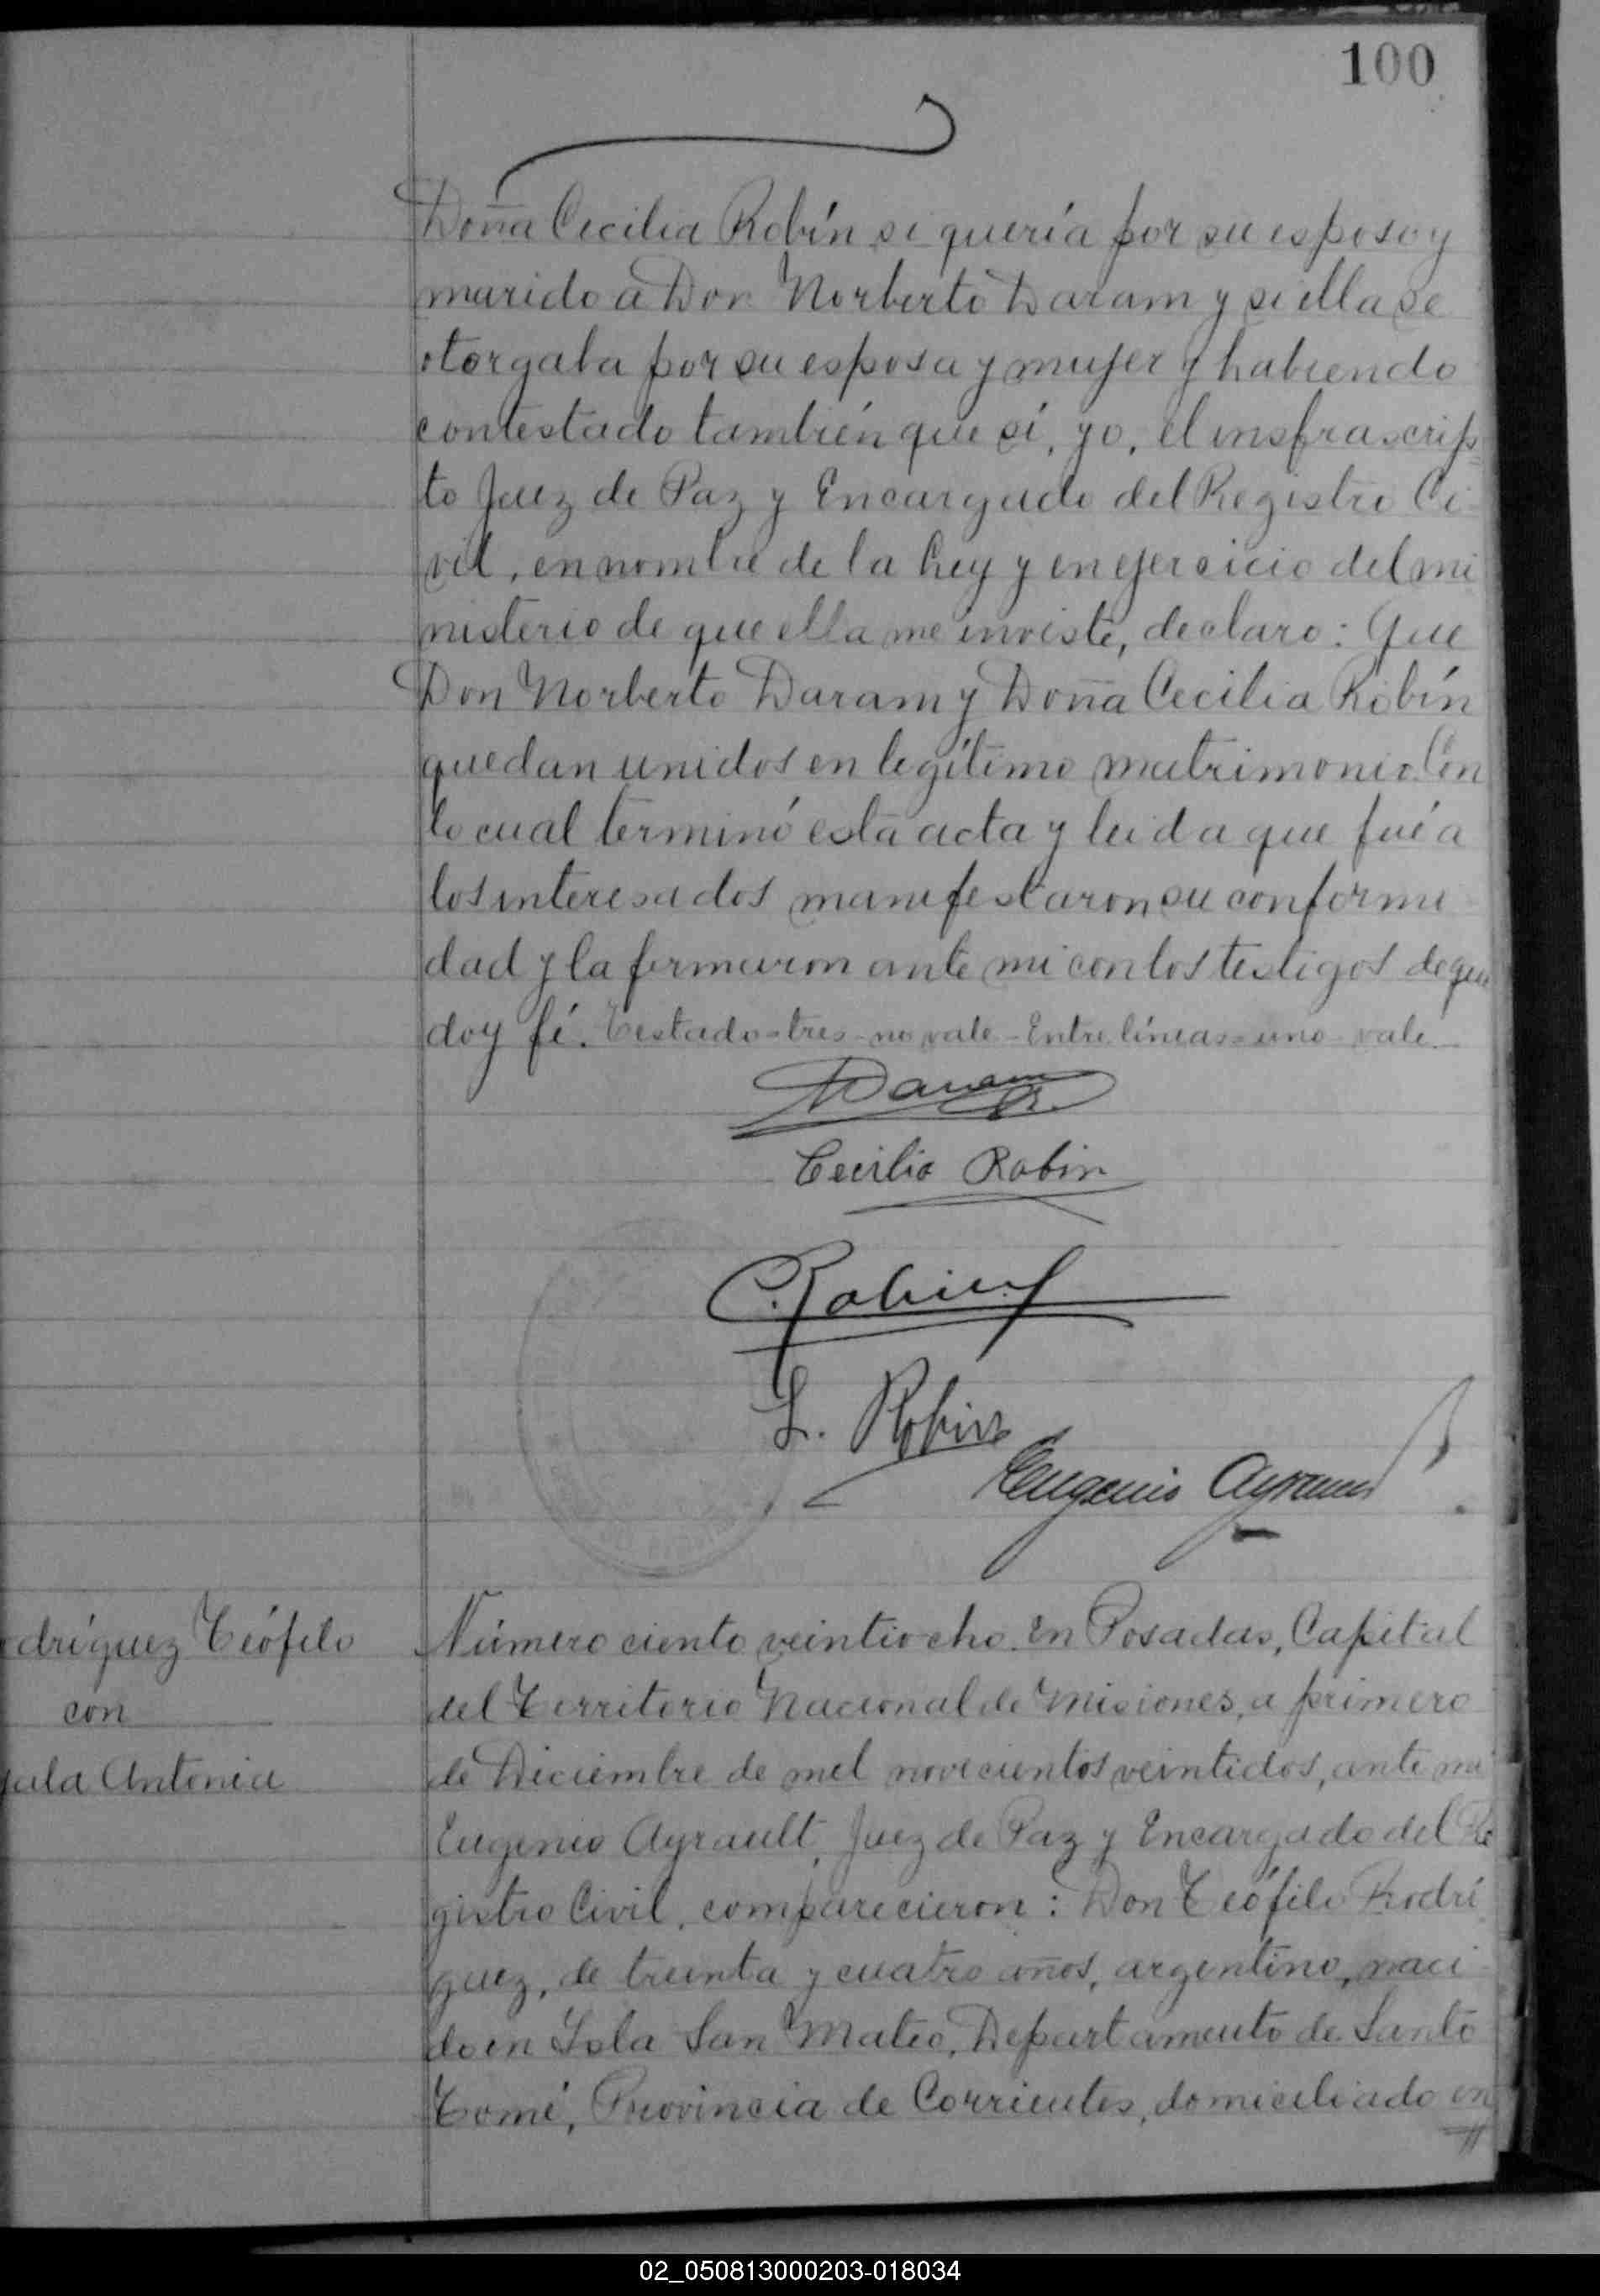 100
Doña Cecilia Robín si quería por su esposo y
marido a Don Norberto Daram y si ella se
otorgaba por su esposa y mujer y habiendo
contestado también que sí, yo, el insfrascrip-
to Juez de Paz y Encargado del Registro Ci-
vil, en nombre de la Ley y en ejercicio del mi
nisterio de que ella me inviste, declaro: Que
Don Norberto Daram y Doña Cecilia Robín
quedan unidos en legítimo matrimonio. Con
lo cual terminó esta acta y leida que fué a
los interesados manifestaron su conformi-
dad y la firmaron ante mi con los testigos de que
doy fé. Testado-tres-no vale-Entre líneas-uno-vale.
Daram
Cecilia Robin
C. Robin
L. Robin
Eugenio Ayrault
odríguez Teófilo
con
yala Antonia
Número ciento veintiocho. En Posadas, Capital
del Territorio Nacional de Misiones, a primero
de Diciembre de mil novecientos veintidos, ante mi
Eugenio Ayrault, Juez de Paz y Encargado del Re
gistro Civil, comparecieron: Don Teófilo Rodrí
guez, de treinta y cuatro años, argentino, naci-
do en Isla San Mateo, Departamento de Santo
Tomé, Provincia de Corrientes, domiciliado en
02_050813000203-018034